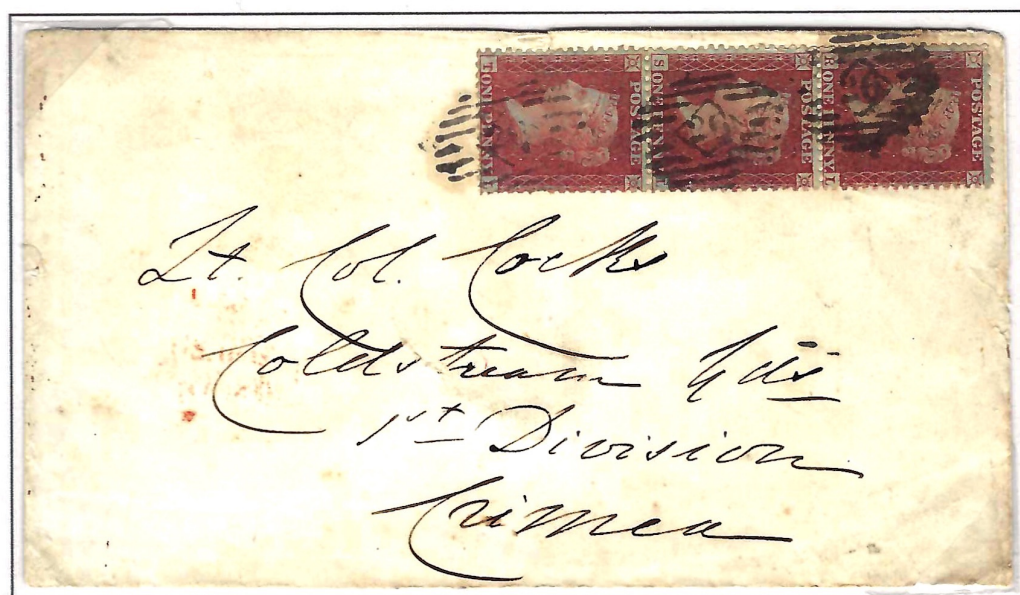 POSTAGE
ONE PENNY
T
POSTAGE
ONE PENNY
S
POSTAGE
ONE PENNY
R L
Lt. Col. Cocks
Coldstream Gds
1st Division
Crimea